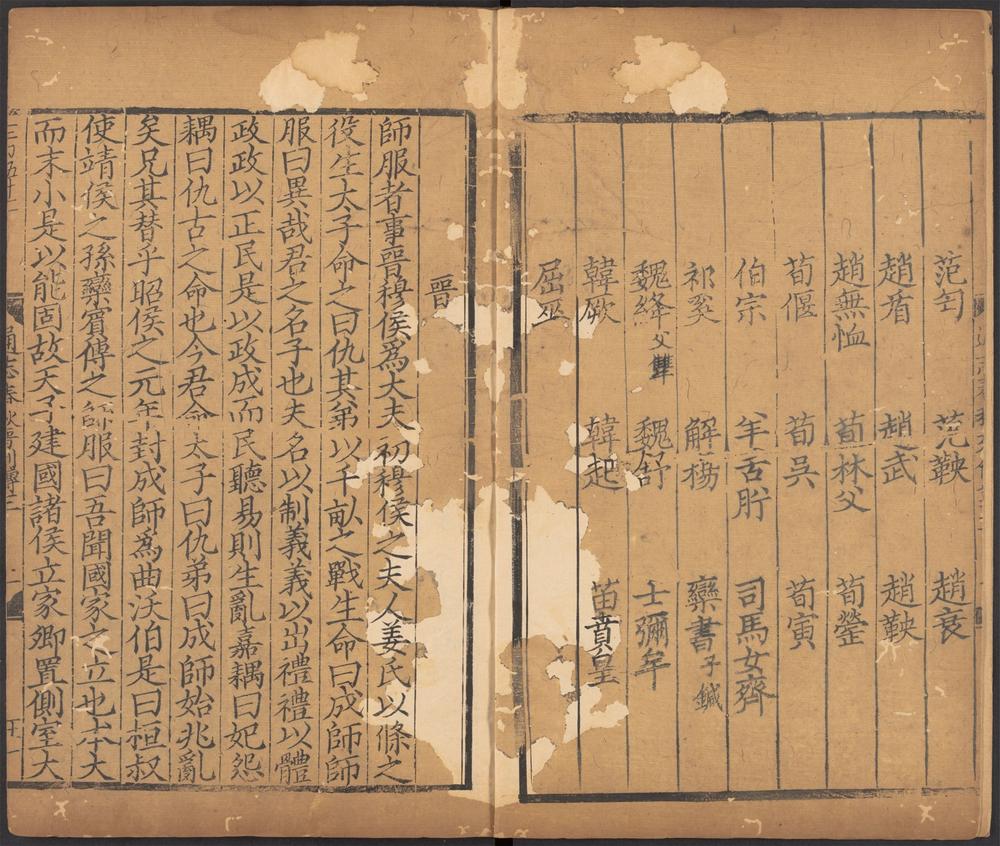 范匄 范鞅 趙衰
趙盾 趙武 趙鞅
趙無恤 荀林父 荀罃
荀偃 荀吳 荀寅
伯宗 羊舌肸 司馬女齊
祁奚 解楊 欒書子鍼
魏絳父犨 魏舒 士彌牟
韓厥 韓起 苗賁皇
屈巫
晉
師服者事晉穆侯爲大夫初穆侯之夫人姜氏以條之
役生太子命之曰仇其弟以千畝之戰生命曰成師師
服曰異哉君之名子也夫名以制義義以出禮禮以體
政政以正民是以政成而民聽易則生亂嘉耦曰妃怨
耦曰仇古之命也今君命太子曰仇弟曰成師始兆亂
矣兄其替乎昭侯之元年封成師爲曲沃伯是曰桓叔
使靖侯之孫欒賓傅之師服曰吾聞國家之立也本大
而末小是以能固故天子建國諸侯立家卿置側室大
通志春秋晉列傳二